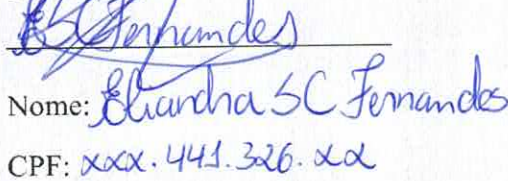 ESCFernandes
Nome: Eliandra SC Fernandes
CPF: xxx.441.326.xx